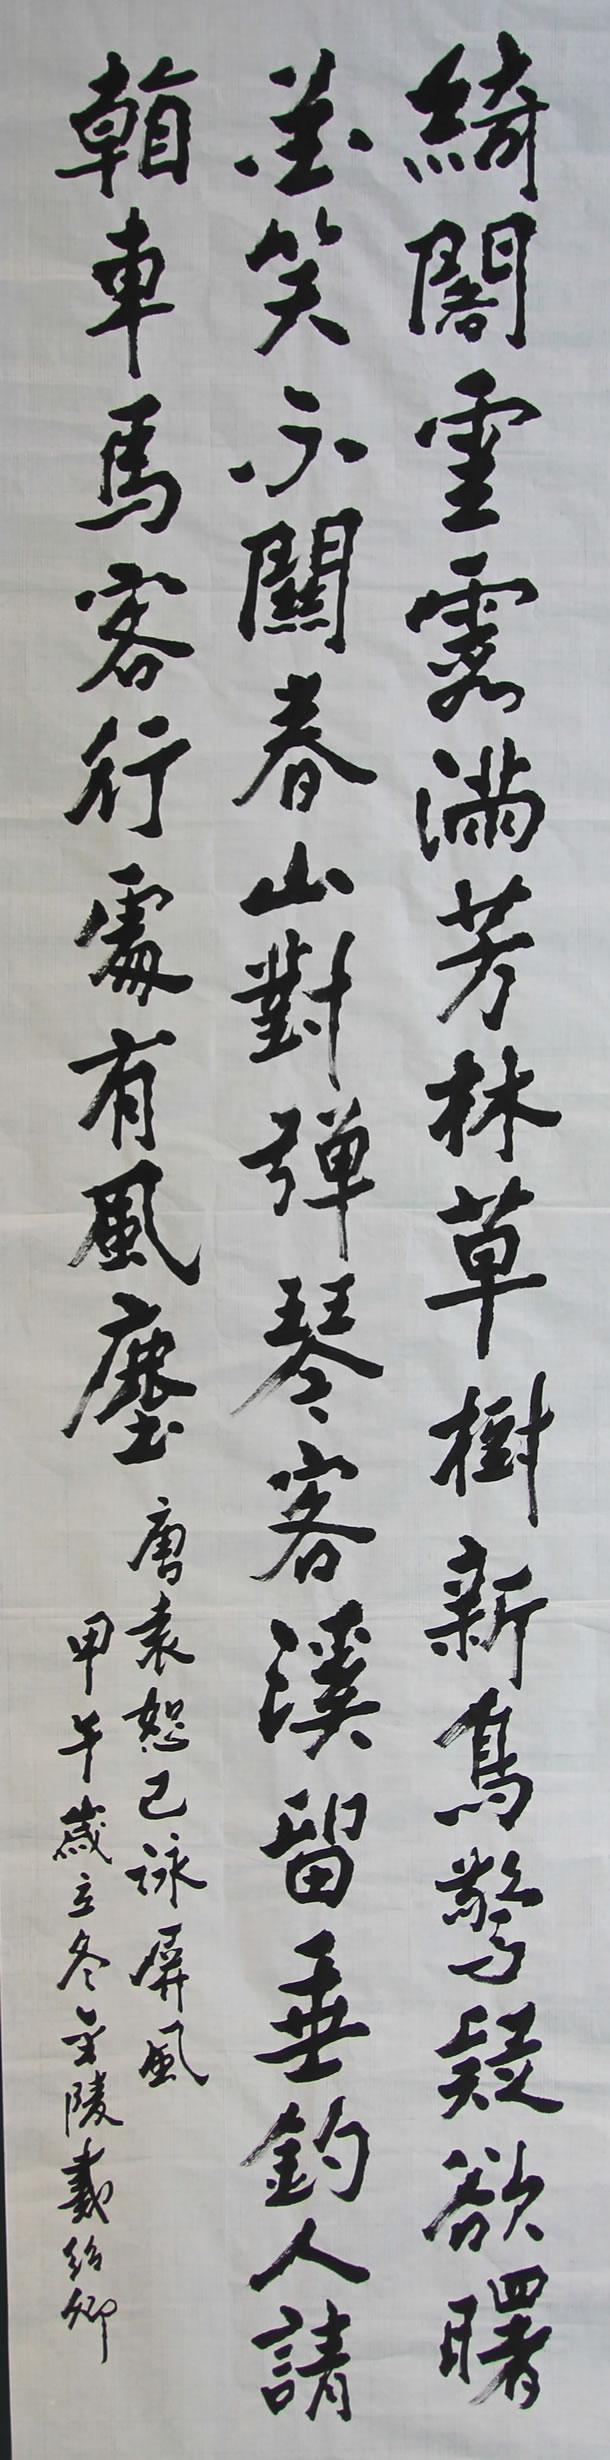 綺閣雲霞滿芳林草樹新鳥驚疑欲曙
花笑不關春山對彈琴客溪留垂釣人請
看車馬客行處有風塵
唐袁恕己詠屏風
甲午歲立冬金陵戴紹卿